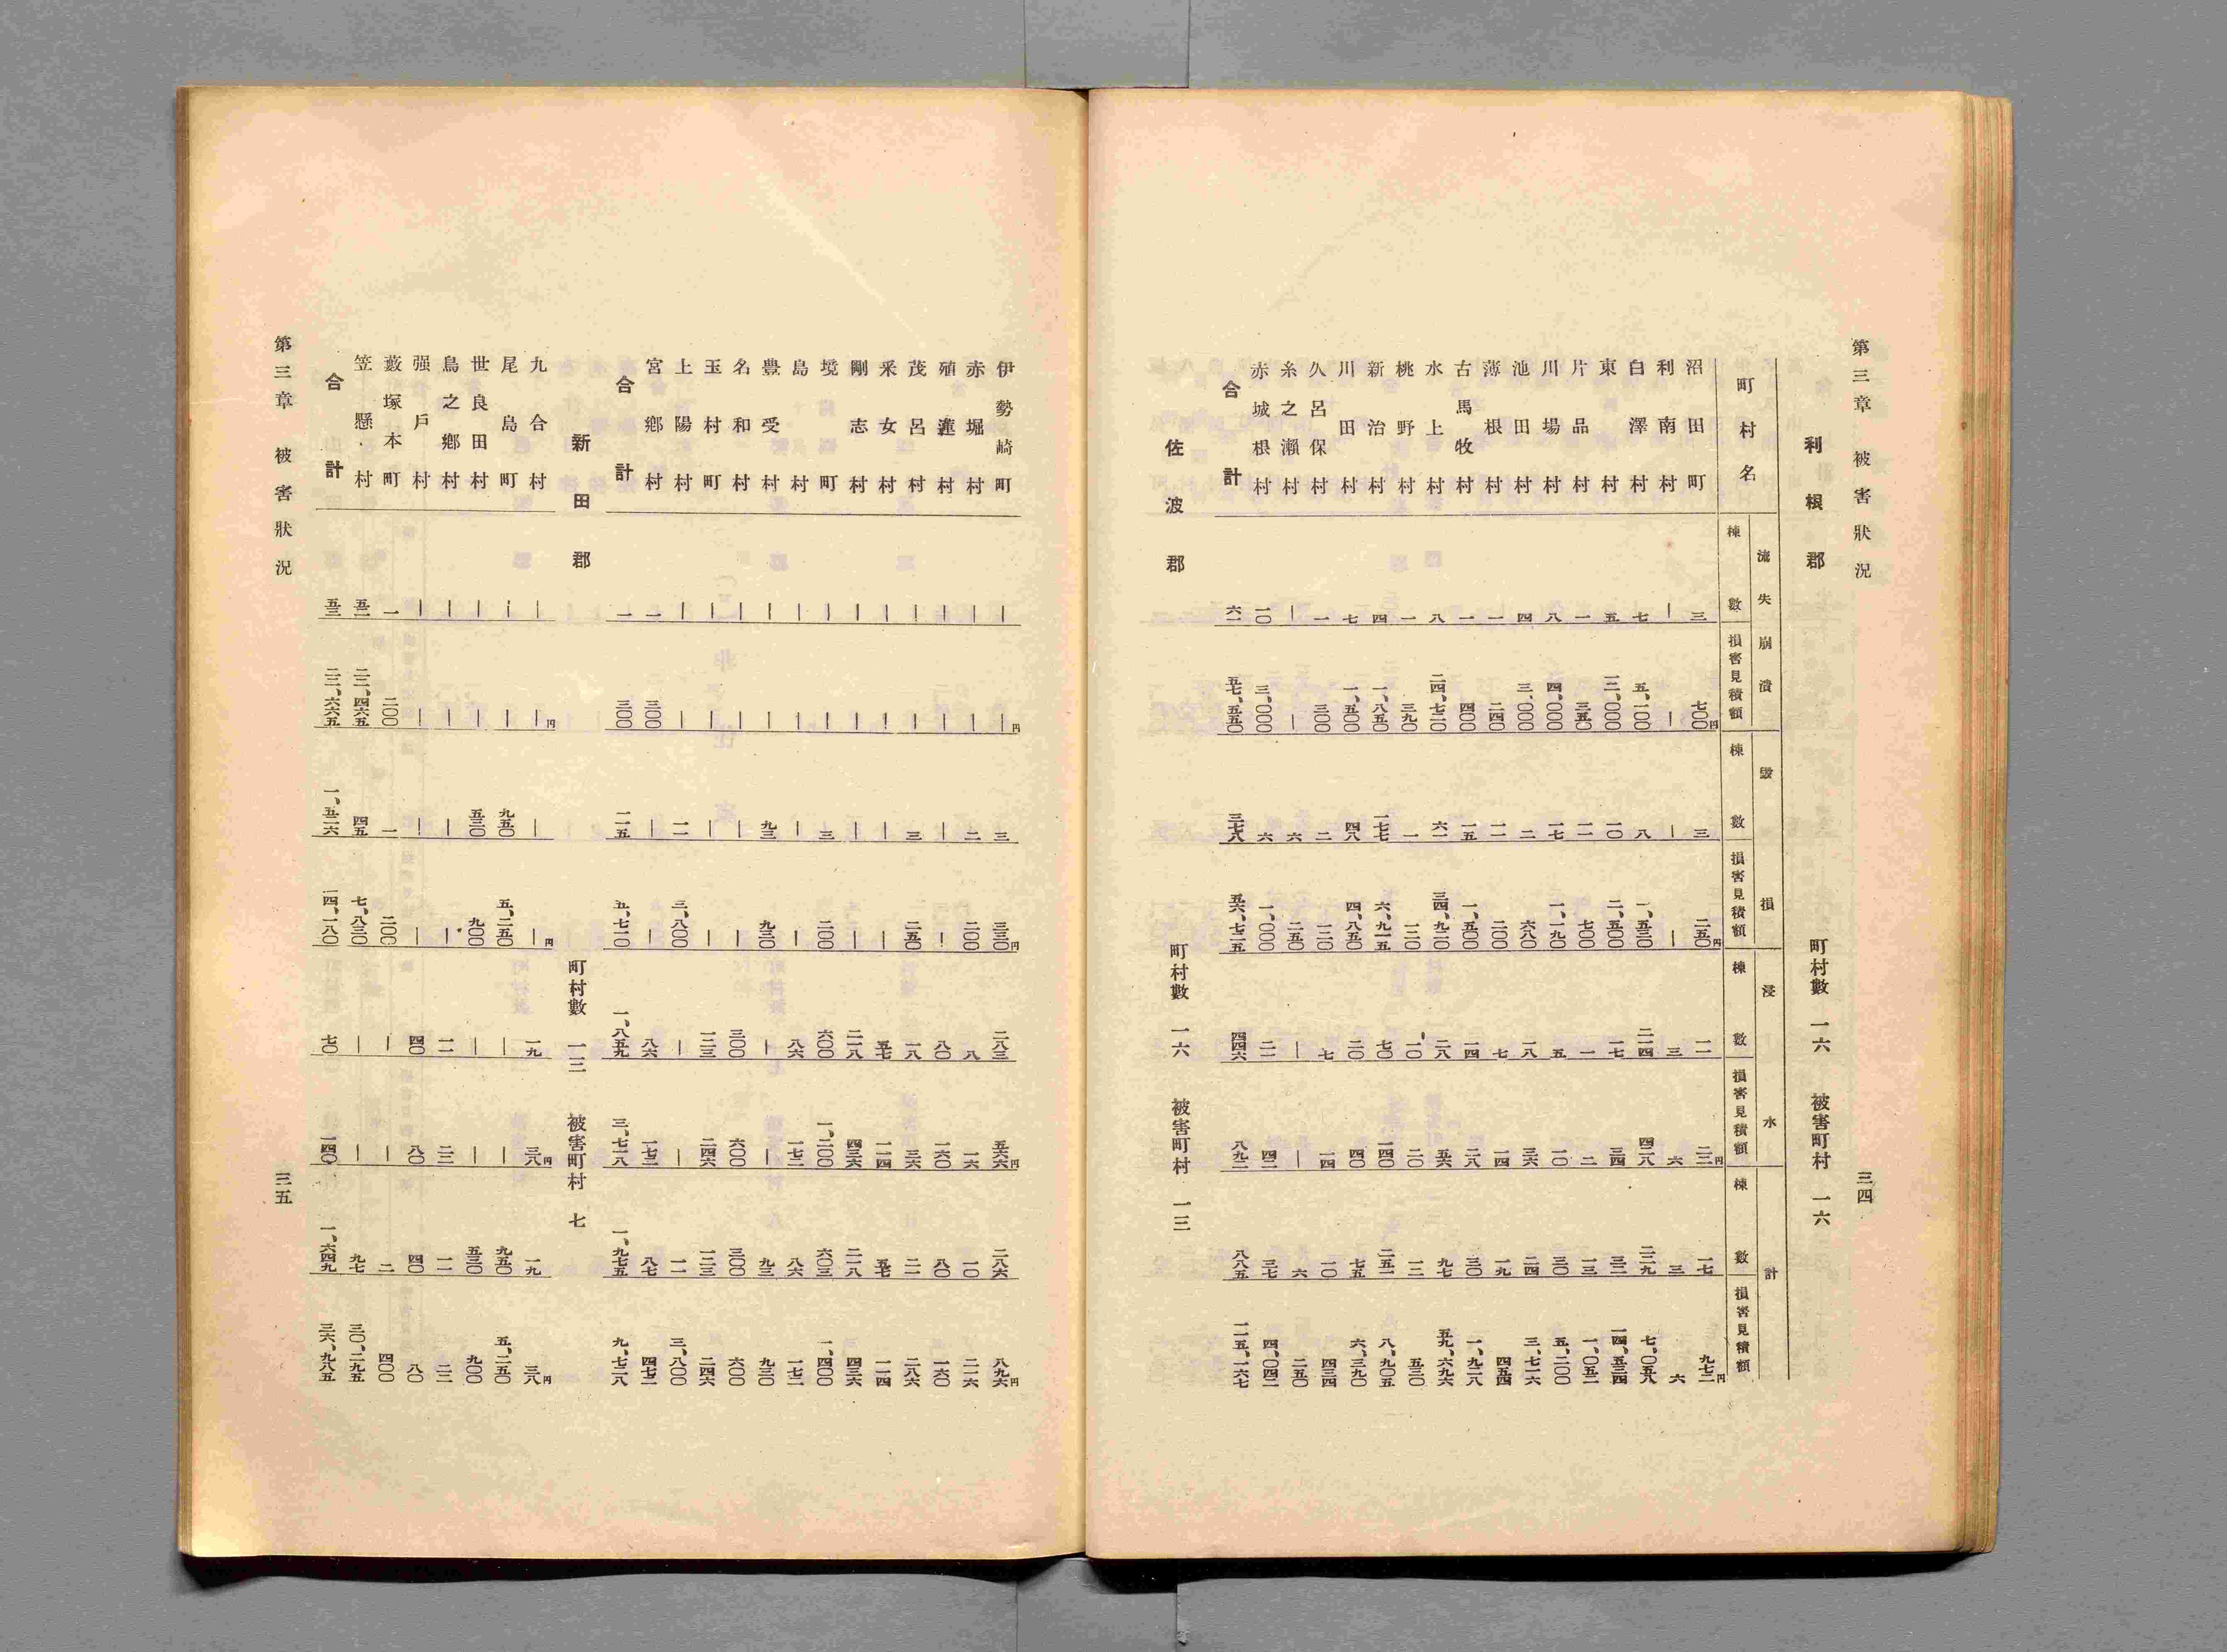 第三章 被害狀況 三四
利根郡 町村數 一六 被害町村 一六
流失崩潰 毀損 浸水 計
町村名 棟數 損害見積額 棟數 損害見積額 棟數 損害見積額 棟數 損害見積額
沼田町 三 七〇〇円 三 二五〇円 一一 二二円 一七 九七二円
利南村 ― ― ― ― 三 六 三 六
白澤村 七 五、一〇〇 八 一、五三〇 二一四 四二八 二二九 七、〇五八
東村 五 一二、〇〇〇 一〇 二、五〇〇 一七 三四 三二 一四、五三四
片品村 一 三五〇 一一 七〇〇 一 二 一三 一、〇五二
川場村 八 四、〇〇〇 一七 一、一九〇 五 一〇 三〇 五、二〇〇
池田村 四 三、〇〇〇 二 六八〇 一八 三六 二四 三、七一六
薄根村 一 二四〇 一一 二〇〇 七 一四 一九 四五四
古馬牧村 一 四〇〇 一五 一、五〇〇 一四 二八 三〇 一、九二八
水上村 八 二四、七二〇 六一 三四、九二〇 二八 五六 九七 五九、六九六
桃野村 一 三九〇 一 一二〇 一〇 二〇 一二 五三〇
新治村 四 一、八五〇 一七七 六、九一五 七〇 一四〇 二五一 八、九〇五
川田村 七 一、五〇〇 四八 四、八五〇 二〇 四〇 七五 六、三九〇
久呂保村 一 三〇〇 二 一二〇 七 一四 一〇 四三四
糸之瀨村 ― ― 六 二五〇 ― ― 六 二五〇
赤城根村 一〇 三、〇〇〇 六 一、〇〇〇 二一 四二 三七 四、〇四二
合計 六一 五七、五五〇 三七八 五六、七二五 四四六 八九二 八八五 一一五、一六七
佐波郡 町村數 一六 被害町村 一三
伊勢崎町 ― ―円 三 三三〇円 二八三 五六六円 二八六 八九六円
赤堀村 ― ― 二 二〇〇 八 一六 一〇 二一六
殖蓮村 ― ― ― ― 八〇 一六〇 八〇 一六〇
茂呂村 ― ― 三 二五〇 一八 三六 二一 二八六
采女村 ― ― ― ― 五七 一一四 五七 一一四
剛志村 ― ― ― ― 二一八 四三六 二一八 四三六
境町 ― ― 三 二〇〇 六〇〇 一、二〇〇 六〇三 一、四〇〇
島村 ― ― ― ― 八六 一七二 八六 一七二
豊受村 ― ― 九三 九三〇 ― ― 九三 九三〇
名和村 ― ― ― ― 三〇〇 六〇〇 三〇〇 六〇〇
玉村町 ― ― ― ― 一二三 二四六 一二三 二四六
上陽村 ― ― 一一 三、八〇〇 ― ― 一一 三、八〇〇
宮鄉村 一 三〇〇 ― ― 八六 一七二 八七 四七二
合計 一 三〇〇 一一五 五、七一〇 一、八五九 三、七一八 一、九七五 九、七二八
新田郡 町村數 一三 被害町村 七
九合村 ― ―円 ― ―円 一九 三八円 一九 三八円
尾島町 ― ― 九五〇 五、二五〇 ― ― 九五〇 五、二五〇
世良田村 ― ― 五三〇 九〇〇 ― ― 五三〇 九〇〇
鳥之鄉村 ― ― ― ― 一一 二二 一一 二二
强戶村 ― ― ― ― 四〇 八〇 四〇 八〇
藪塚本町 一 二〇〇 一 二〇〇 ― ― 二 四〇〇
笠懸村 五二 二二、四六五 四五 七、八三〇 ― ― 九七 三〇、二九五
合計 五三 二二、六六五 一、五二六 一四、一八〇 七〇 一四〇 一、六四九 三六、九八五
第三章 被害狀況 三五